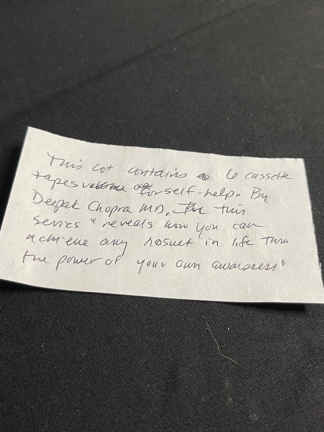 This lot contains 6 cassette
tapes for self-help. By
Deepak Chopra MD. In this
series "reveals how you can
achieve any result in life thru
the power of your own awareness"